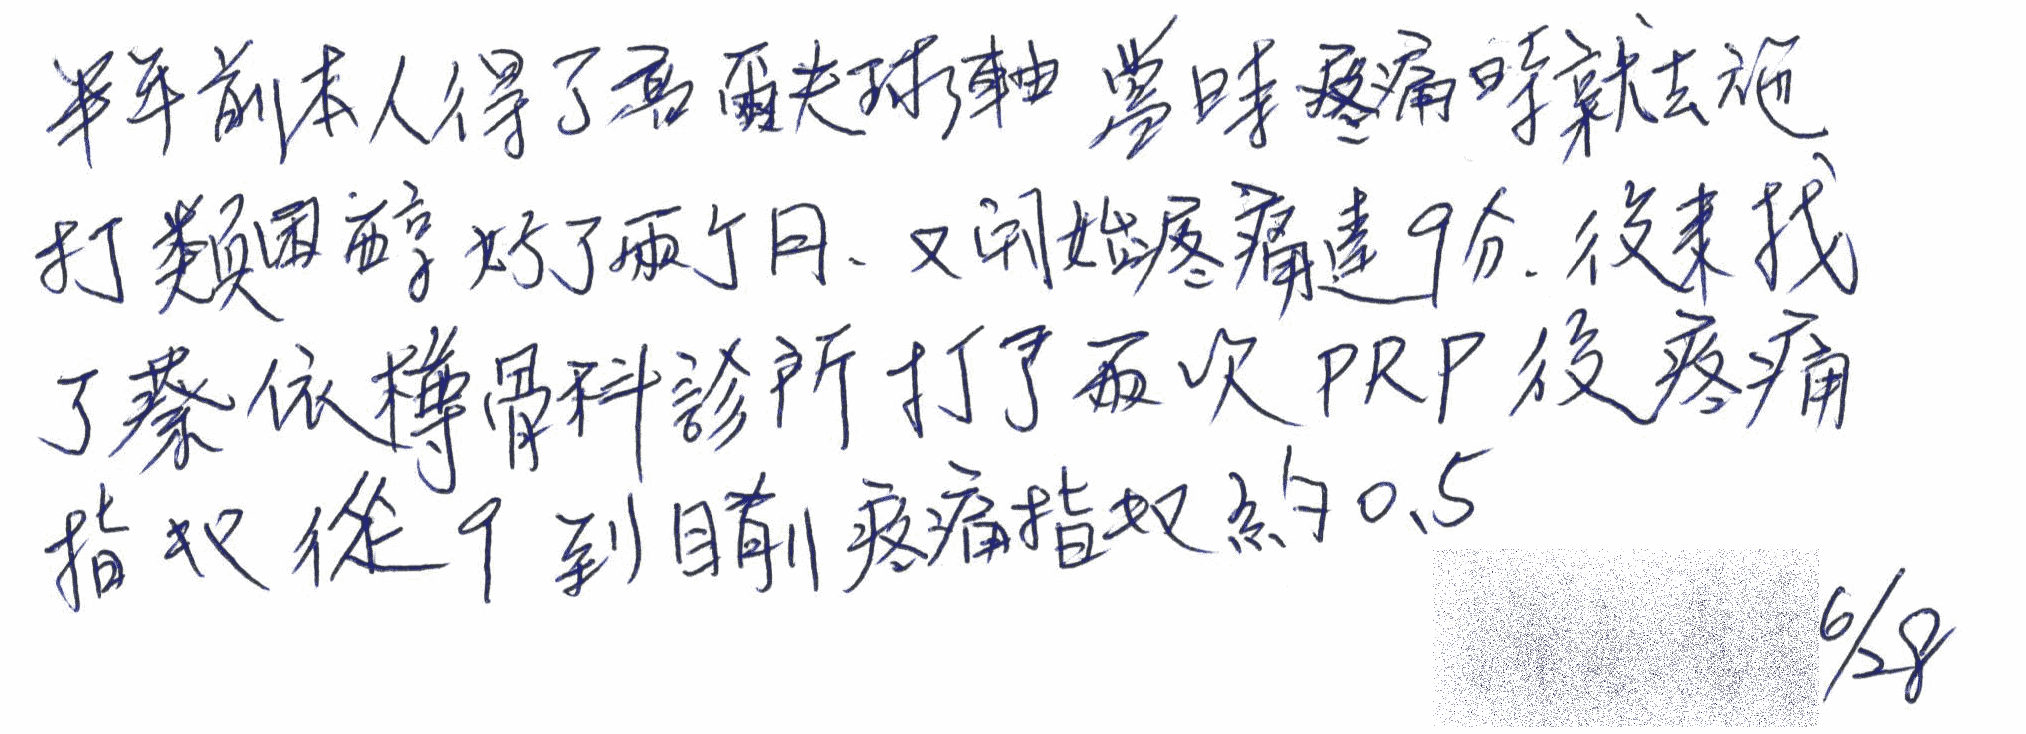 半年前本人得了高爾夫球軸 當時疼痛時就去施
打類固醇好了兩个月、又開始疼痛達9分.後來找
了蔡依樽骨科診所打了兩次PRP後疼痛
指也從9到目前疼痛指奴約0.5
6/28